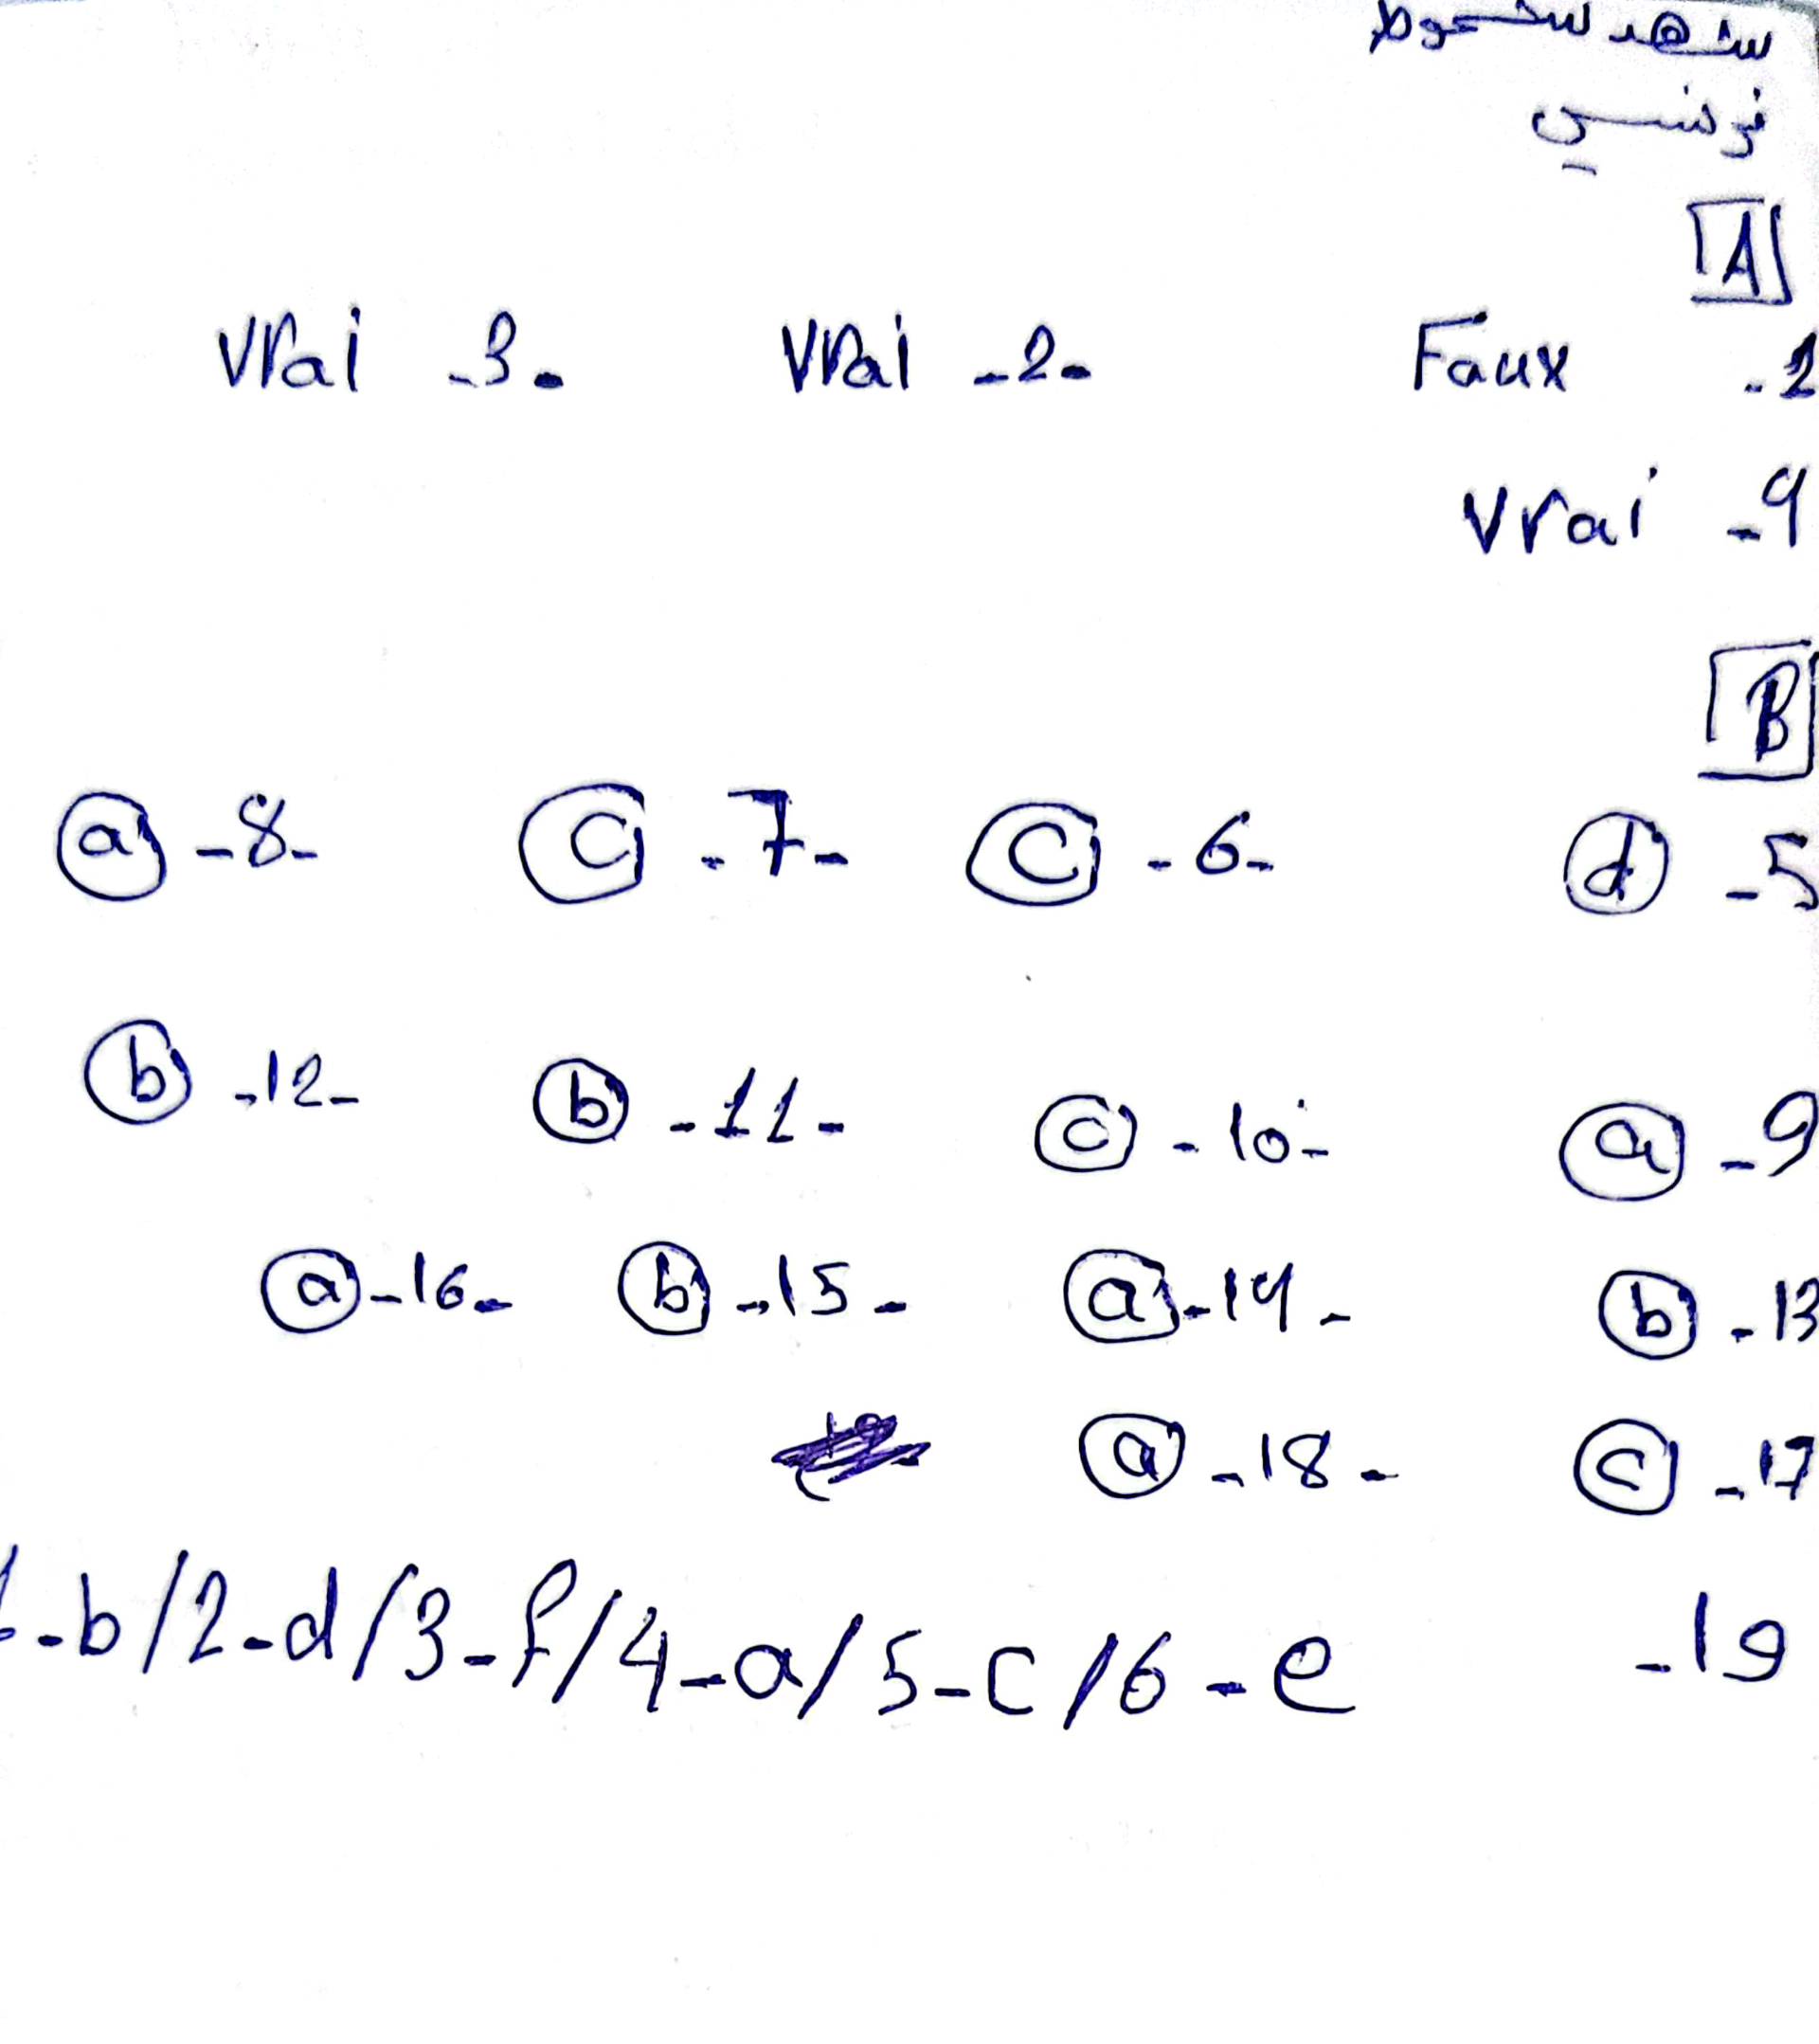 شهد سحوط
فرنسي
A
1- Faux -2- Vrai -3- Vrai
4- Vrai
B
5- d -6- c -7- c -8- a
9- a -10- c -11- b -12- b
13- b -14- a -15- b -16- a
17- c -18- a
19- 1-b/2-d/3-f/4-a/5-c/6-e